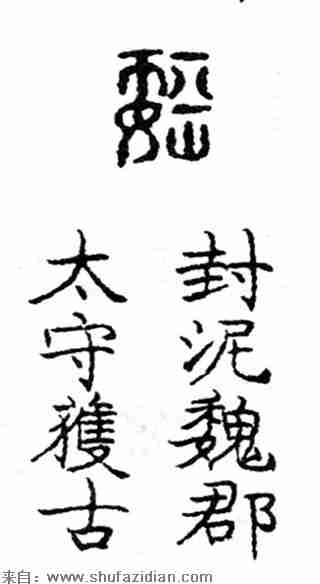 封泥魏郡
太守獲古
来自：www.shufazidian.com